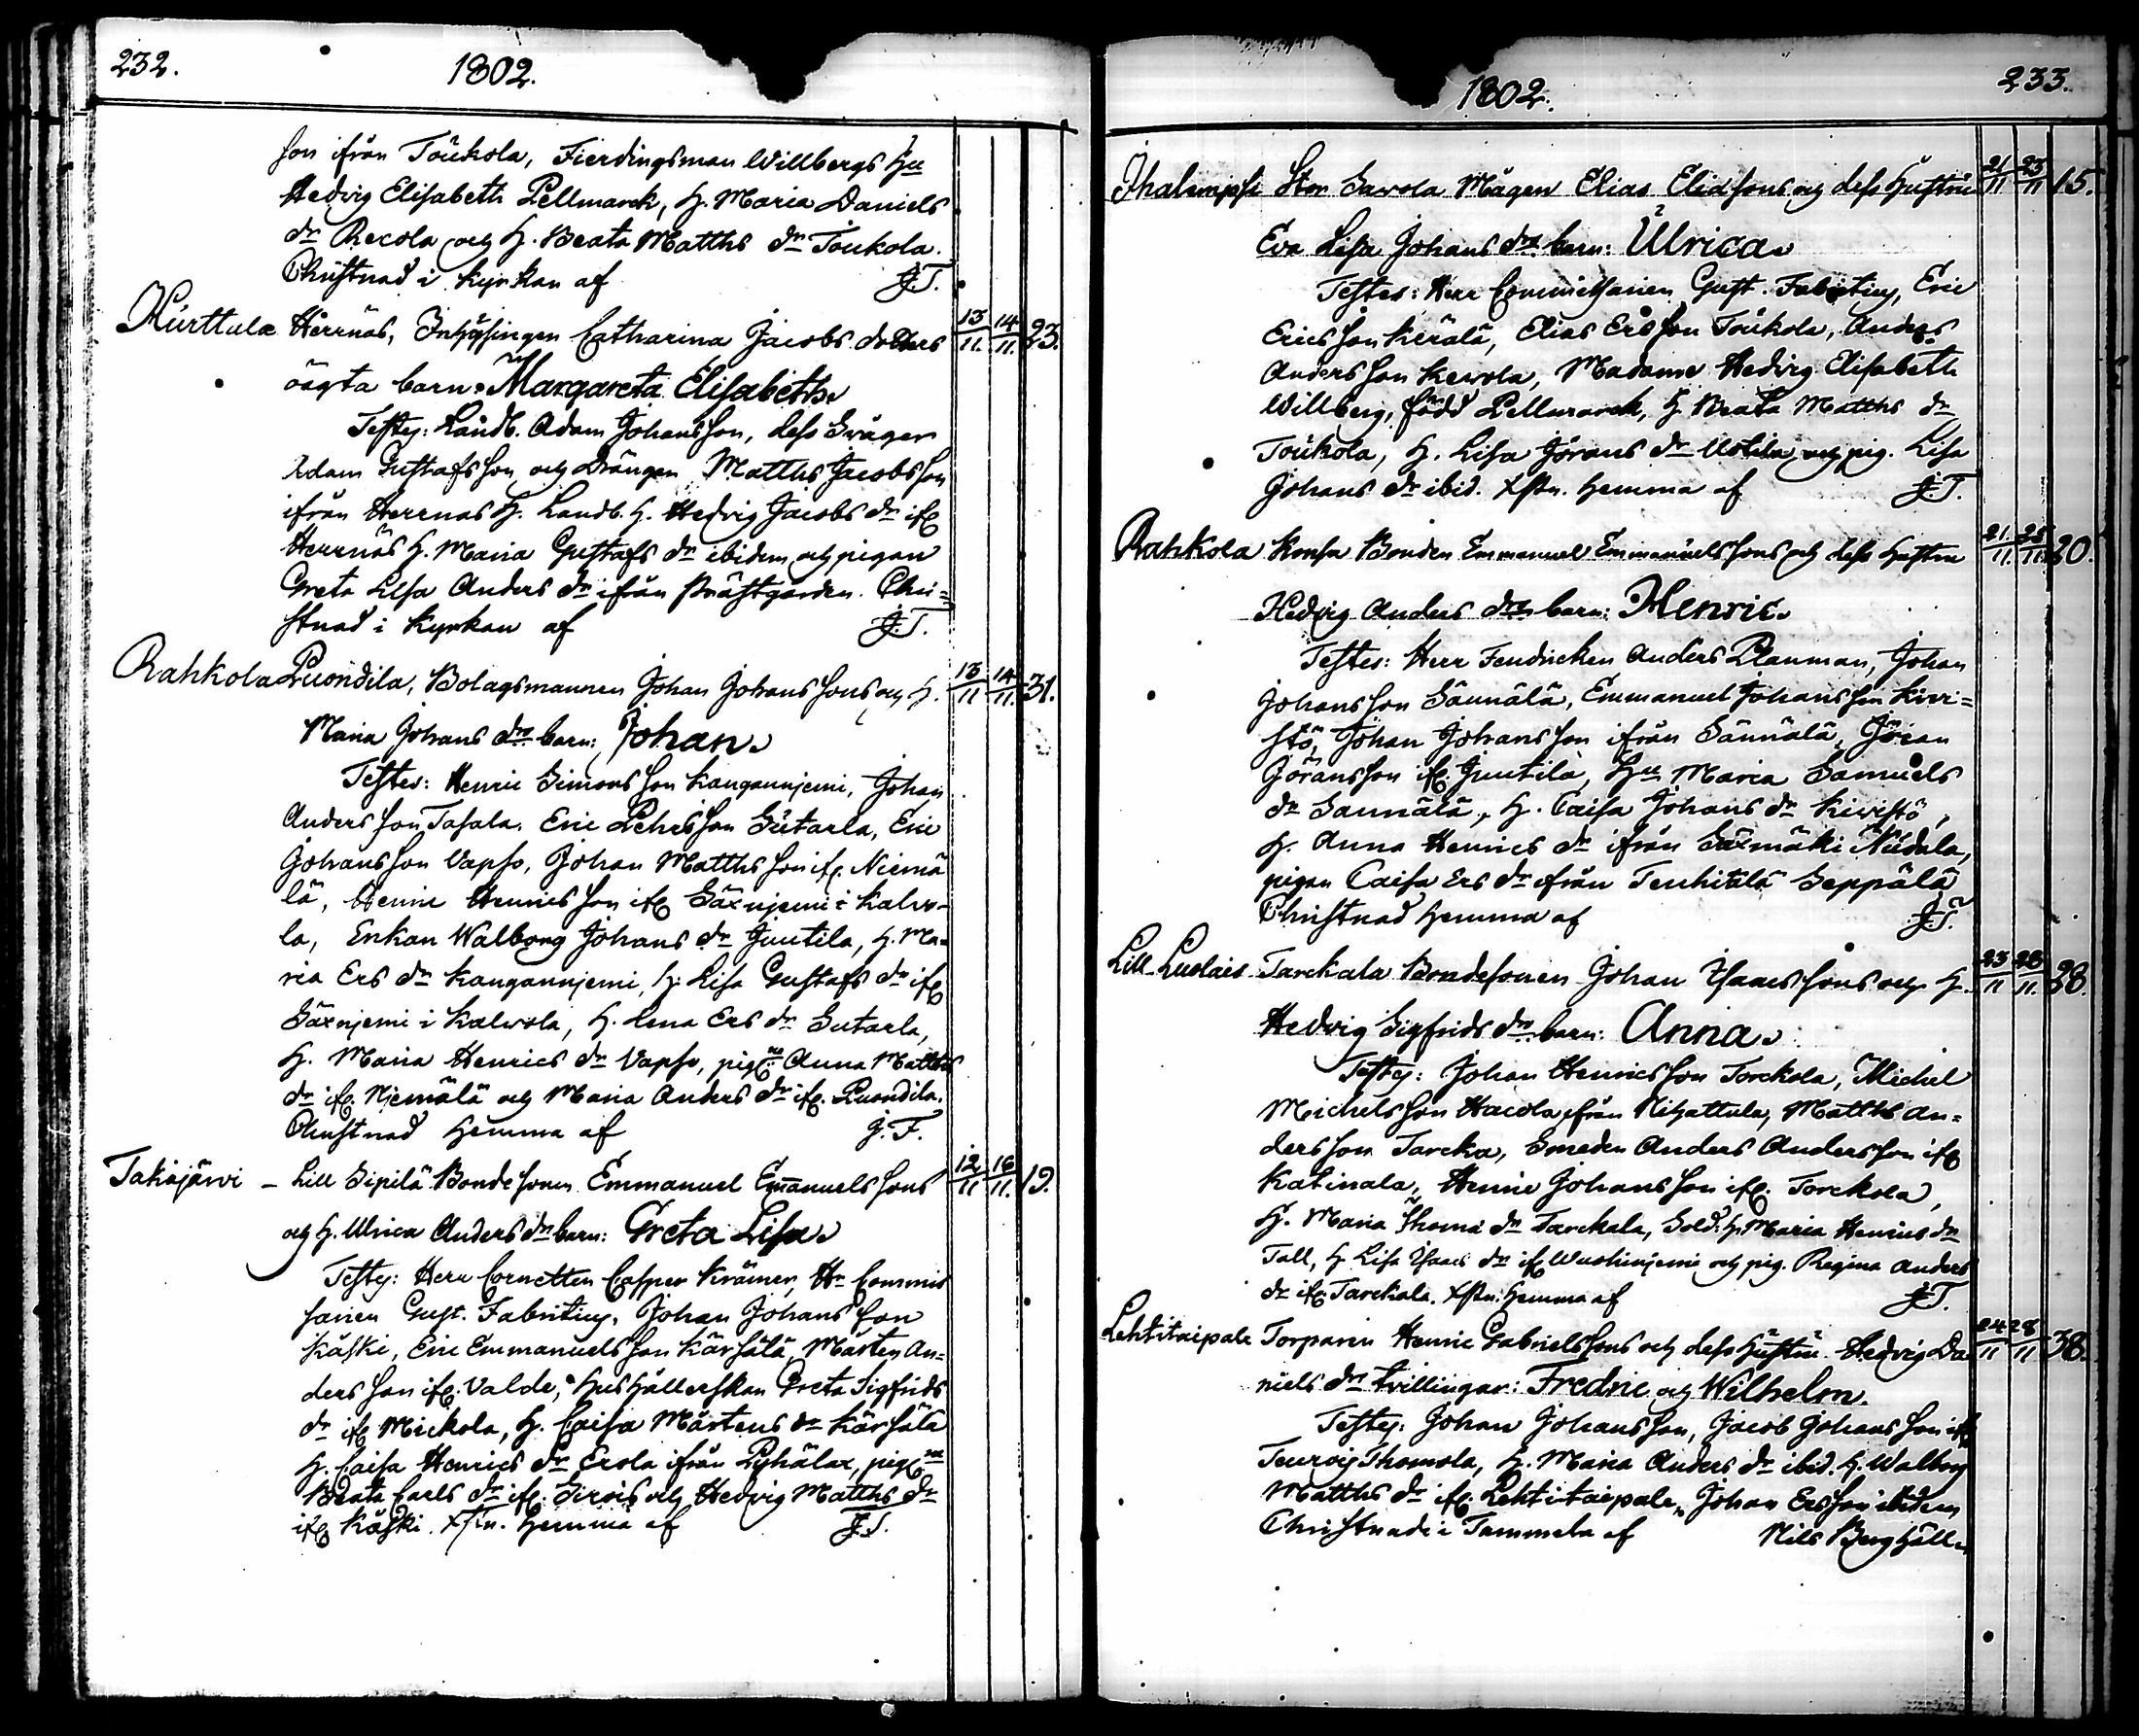 232. 1802.
son ifrån Toukola, Fierdingsman Willbergs Hu
Hedvig Elisabeth Pellmarck, H. Maria Daniels
dr Recola och H. Beata Matths dr Toukola.
Christnad i kyrkan af J.T.
Hurttula Herrnäs, Inhysingen Catharina Jacobs dotters 13/11. 14/11. 23.
oägta barn: Margareta Elisabeth.
Testes: Landb. Adam Johansson, dess Swåger
Adam Gustafsson och Drängen Matths Jacobsson
ifrån Herrnäs H. Landb. H. Hedvig Jacobs dr ifr.
Herrnäs H. Maria Gustafs dr ibidem och pigan
Greta Lisa Anders dr ifrån Prästgården. Chri=
stnad i Kyrkan af J.T.
Rahkola Puondila, Bolagsmannen Johan Johanssons och H. 13/11 14/11. 31.
Maria Johans drs barn: Johan.
Testes: Henric Simonsson Kangannjemi, Johan
Andersson Tasala. Eric Pehrsson Sutarla, Eric
Johansson Vapso, Johan Matthsson ifr. Niemä
lä, Henric Henricsson ifr. Säxnjemi i Kalvo-
la, Enkan Walborg Johans dr Juutila, H. Ma-
ria Ers dr Kangannjemi, H. Lisa Gustafs dr ifr.
Säxnjemi i Kalvola, H. Lena Ers dr Sutarla,
H. Maria Henrics dr Vapso, pig:ne Anna Matths
dr ifr. Njemälä och Maria Anders dr ifr. Puondila.
Christnad hemma af J.T.
Takajärvi - Lill Sipilä Bondesonen Emmanuel Emanuelssons 12/11 16/11. 19.
och H. Ulrica Anders drs barn: Greta Lisa.
Testes: Herr Cornetten Casper Krämer, Hr Commis
sarien Gust. Fabritius, Johan Johansson
Käski, Eric Emmanuelsson Kärsälä, Mårten An=
dersson ifr. Valde, Hushållerskan Greta Sigfrids
dr ifr. Mickola, H. Caisa Mårtens dr Kärsälä
H. Caisa Henrics dr Erola ifrån Pyhälax, pig:ne
Beata Carls dr ifr. Sirois och Hedvig Matths dr
ifr. Käski. Xstn. hemma af J.T.
1802. 233.
Ihalempsi Stor Savola Mågen Elias Eliassons och dess Hustrus 21/11 23/11 15.
Eva Lisa Johans drs barn: Ulrica.
Testes: Herr Commissarien Gust. Fabritius, Eric
Ericsson Kerälä, Elias Ersson Toukola, Anders
Andersson Kerola, Madame Hedvig Elisabeth
Willberg, född Pellmarck, H. Beata Matths dr
Toukola, H. Lisa Jörans dr Ustila och pig. Lisa
Johans dr ibid. Xstn. hemma af J.T.
Rahkola Konsa Bonden Emmanuel Emmanuelssons och dess hustru 21/11. 25/11. 20.
Hedvig Anders drs barn: Henric.
Testes: Herr Fendricken Anders Planman, Johan
Johansson Sännälä, Emmanuel Johansson Kivi=
stö, Johan Johansson ifrån Sännälä, Jöran
Göransson ifr. Juutila, Hu Maria Samuels
dr Sannälä, H. Caisa Johans dr Kivistö,
H. Anna Henrics dr ifrån Säxmäki Nudala,
pigan Caisa Ers dr ifrån Tenhitälä Seppälä
Christnad hemma af J.T.
Lill Luolais Tarckala Bondesonen Johan Isaacssons och H. 23/11 28/11. 28.
Hedvig Sigfrids drs barn: Anna.
Testes: Johan Henricsson Torckola, Michel
Michelsson Hacola ifrån Nihattula, Matths An=
dersson Tarcka, Smeden Anders Andersson ifr.
Katinala, Henric Johansson ifr. Torckola,
H. Maria Thomæ dr Tarckala, Sold: H. Maria Henrics dr
Tall, H. Lisa Isaacs dr ifr. Wuohinjemi och pig. Regina Anders
dr ifr. Tarckala. Xstn. hemma af J.T.
Lehtitaipale Torparen Henric Gabrielssons och dess Hustru Hedvig Da 24/11 28/11 38.
niels drs tvillingar: Fredric och Wilhelm.
Testes: Johan Johansson, Jacob Johansson ifr.
Teurois Thomola, H. Maria Anders dr ibid. H. Walborg
Matths dr ifr. Lehtitaipale, Johan Ersson ibidem
Christnade i Tammela af Nils Berghäll.